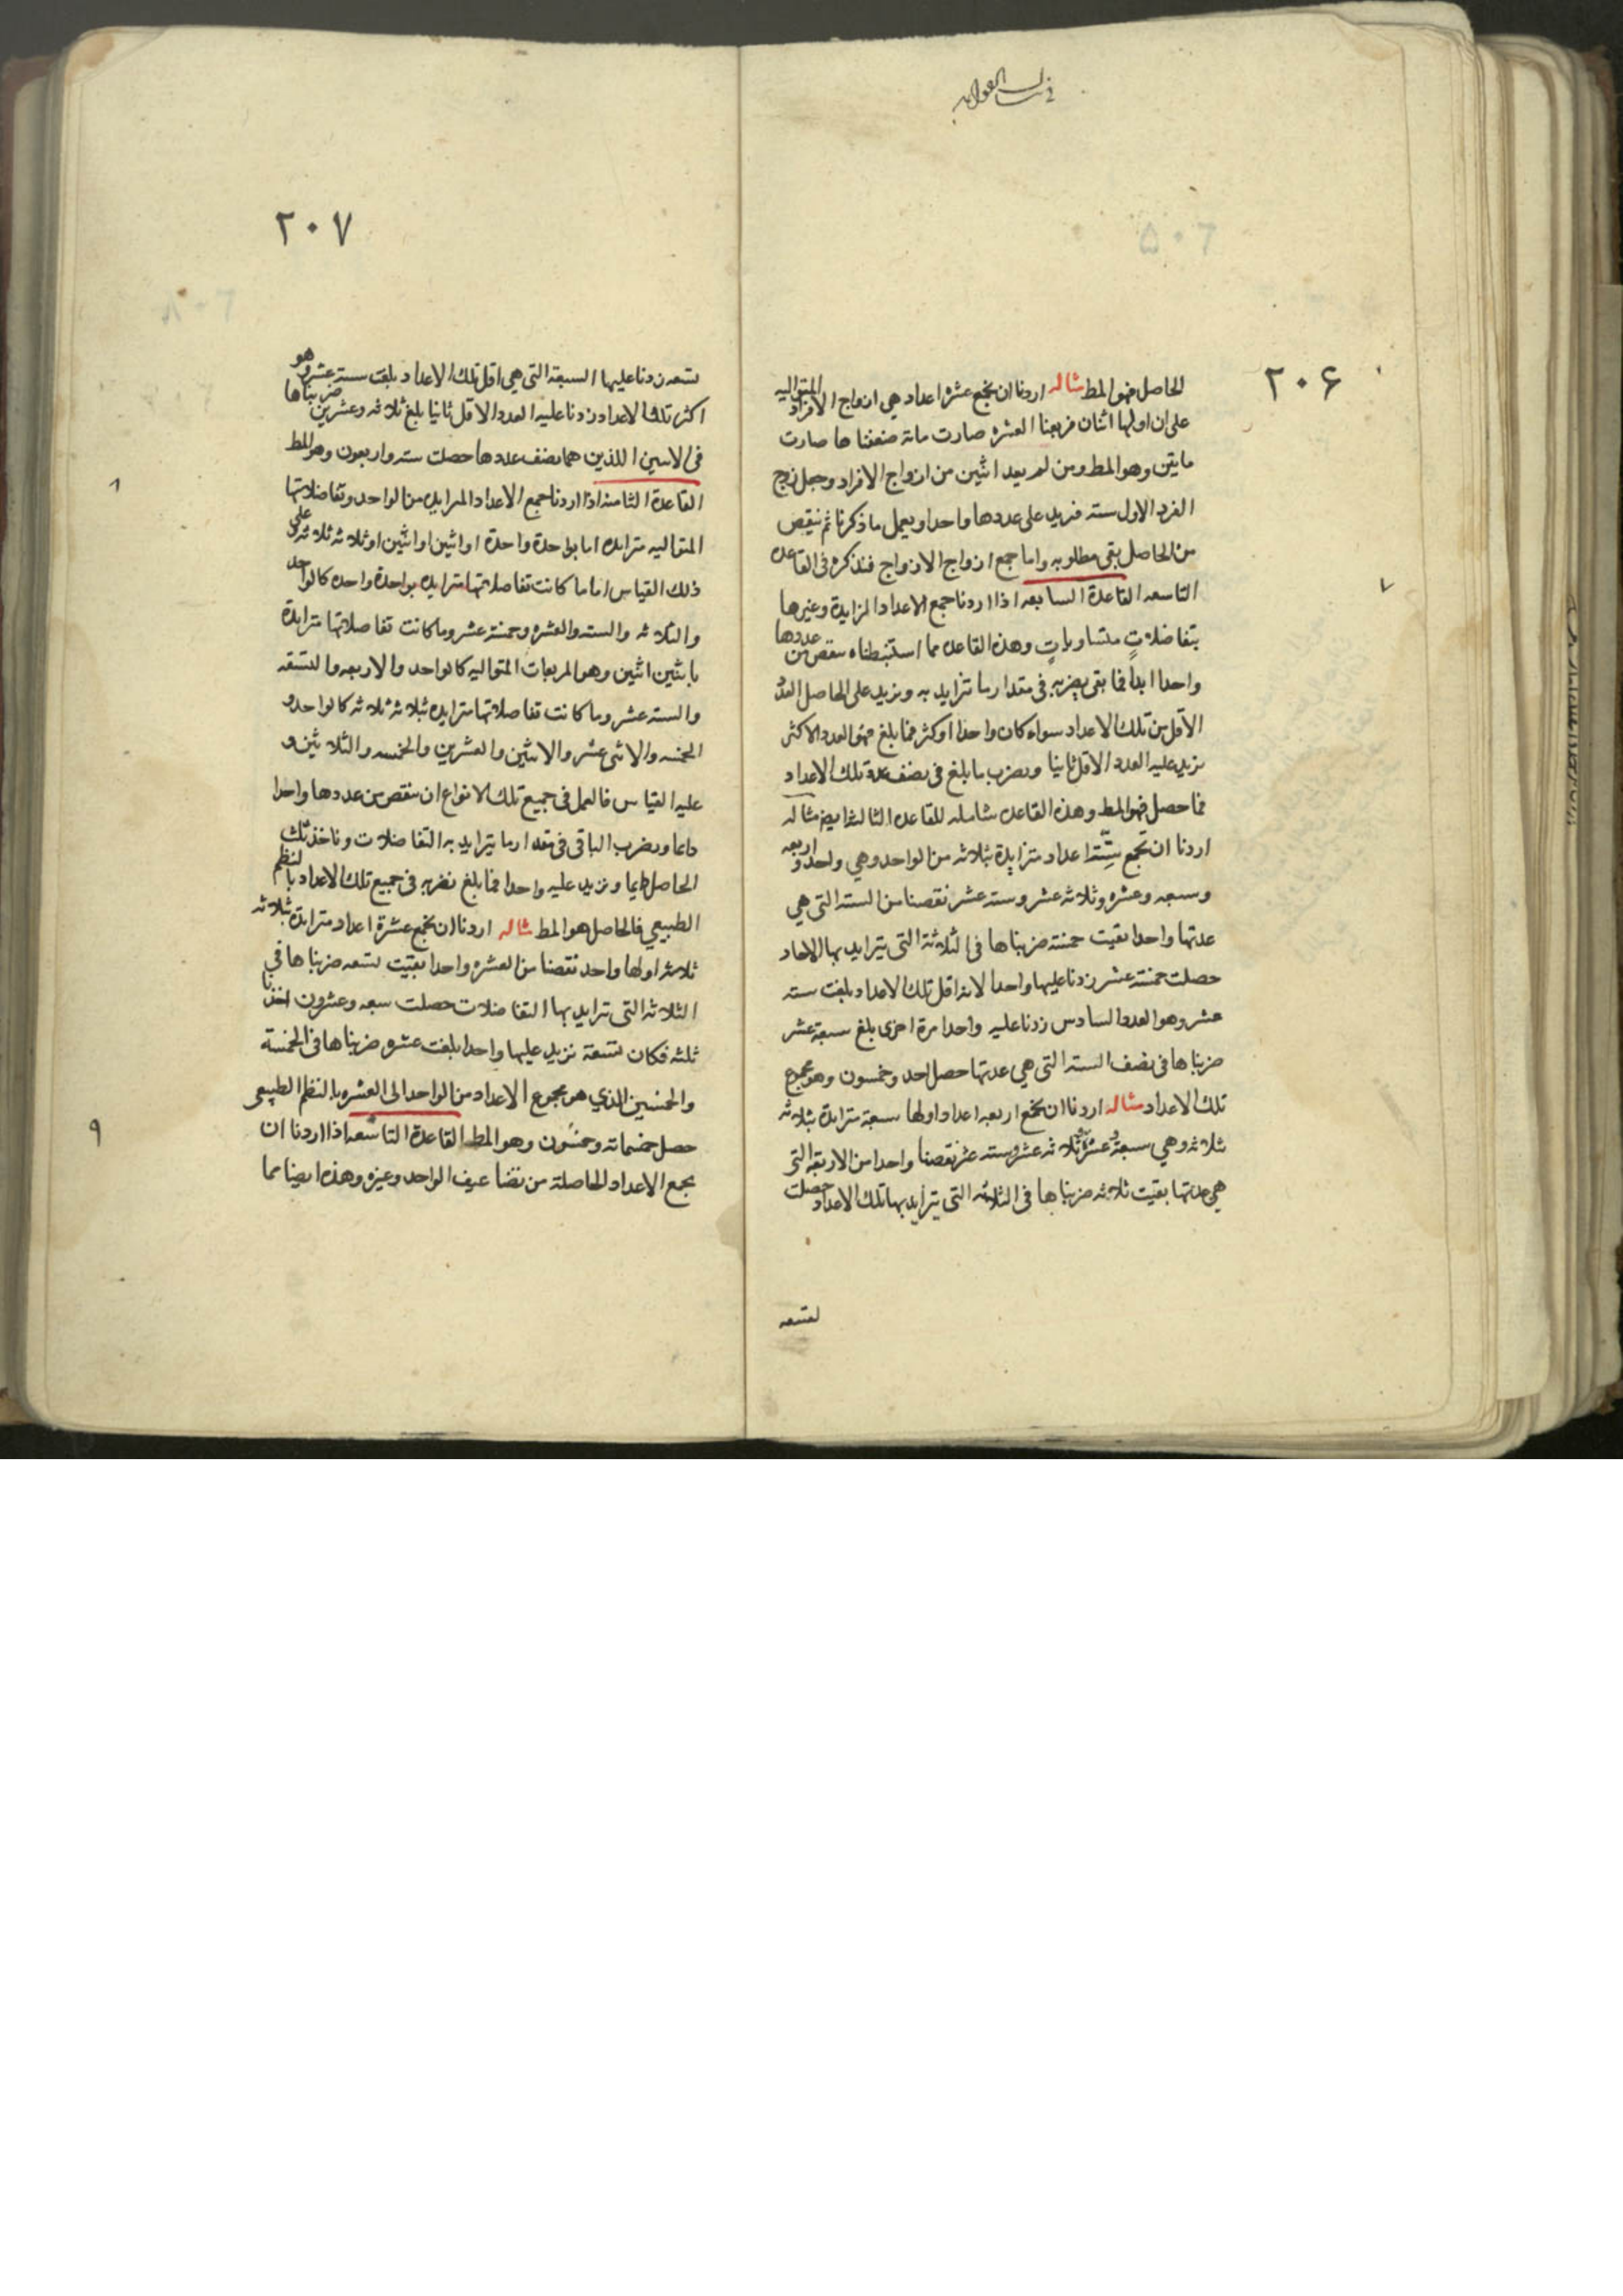 ٢٠۶
الحاصل فهو المط مثاله اردنا ان نجمع عشرة اعداد هي ازواج الافراد المتواليه
على ان اولها اثنان فربعنا العشره صارت مائة ضعفناها صارت
مايتين وهو المط ومن لم يعد اثنين من ازواج الافراد وجعل زوج
الفرد الاول سته فنزيد على عددها واحدا ويعمل ما ذكرنا ثم نيقص
من الحاصل بقى مطلوبه واما جمع ازواج الازواج فنذكره في القاعده
التاسعه القاعدة السابعه اذا اردنا جمع الاعداد المزايدة وغيرها
بتفاضلاتٍ متساوياتٍ وهذه القاعده مما استنبطناه ننقص من عددها
واحدا ابداً فما بقى يضربه في مقدار ما تزايد به ونزيد على الحاصل العدد
الاقل من تلك الاعداد سواء كان واحدا او اكثر فما بلغ فهو العدد الاكثر
نزيد عليه العدد الاقل ثانيا ونضرب ما بلغ في نصف عدة تلك الاعداد
فما حصل فهو المط وهذه القاعده شامله للقاعده الثالثة ايضا مثاله
اردنا ان نجمع ستة اعداد متزايدة بثلاثه من الواحد وهي واحد و اربعه
وسبعه وعشره وثلاثه عشر وسته عشر نقصنا من السته التي هي
عدتها واحدا بقيت خمسة ضربناها في الثلاثة التي تتزايد بها الاعداد
حصلت خمسة عشر زدنا عليها واحدا لانه اقل تلك الاعداد بلغت سته
عشر وهو العدد السادس زدنا عليه واحدا مرة اخرى بلغ سبعة عشر
ضربناها في نصف السته التي هي عدتها حصل احد وخمسون وهو مجموع
تلك الاعداد مثاله اردنا ان نجمع اربعه اعداد اولها سبعة متزايدة بثلاثه
ثلاثه وهي سبعة وعشرة وثلاثه عشر وسته عشر نقصنا واحدا من الاربعة التي
هي عدتها بقيت ثلاثه ضربناها في الثلاثه التي يتزايد بها تلك الاعداد حصلت
لتسعه
٧
٢٠٧
تسعه زدنا عليها السبعة التي هي اقل تلك الاعداد بلغت ستة عشر وهو
اكثر تلك الاعداد زدنا عليه العدد الاقل ثانيا بلغ ثلاثه وعشرين ضربناها
في الاثنين اللذين هما نصف عددها حصلت سته واربعون وهو المط
القاعدة الثامنه اذا اردنا جمع الاعداد المتزايده من الواحد وتفاضلاتها
المتواليه متزايده اما بواحدة واحدة او اثنين اثنين او ثلاثه ثلاثه على
ذلك القياس اما ما كانت تفاضلاتها متزايده بواحدة واحده كالواحد
والثلاثه والسته والعشره وخمسة عشر وما كانت تفاضلاتها متزايدة
باثنين اثنين وهو المربعات المتواليه كالواحد والاربعه والتسعه
والسته عشر وما كانت تفاضلاتها متزايده بثلاثه ثلاثه كالواحد و
الخمسه والاثنى عشر والاثنين والعشرين والخمسه والثلاثين و
عليه القياس فالعمل في جميع تلك الانواع ان ننقص من عددها واحدا
دائما ونضرب الباقي في مقدار ما يتزايد به التفاضلات وناخذ ثلث
الحاصل دايما ونزيد عليه واحدا فما بلغ نضربه في جميع تلك الاعداد بالنظم
الطبيعي فالحاصل هو المط مثاله اردنا ان نجمع عشرة اعداد متزايدة بثلاثه
ثلاثه اولها واحد نقصنا من العشره واحدا بقيت تسعه ضربناها في
الثلاثه التي تزايد بها التفاضلات حصلت سبعه وعشرون اخذنا
ثلثه فكان تسعة نزيد عليها واحدا بلغت عشره ضربناها في الخمسة
والخمسين الذي هو مجموع الاعداد من الواحد الى العشره بالنظم الطبيعي
حصل خمسمائة وخمسون وهو المط القاعدة التاسعه اذا اردنا ان
نجمع الاعداد الحاصلة من تضاعيف الواحد وغيره وهذه ايضا مما
٨
٩